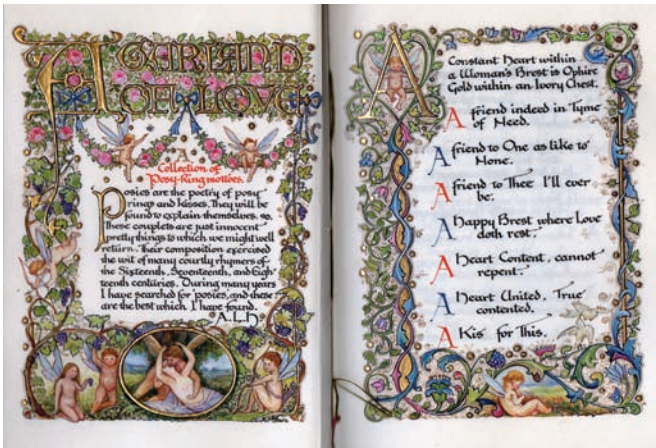 A GARLAND
OF LOVE
A
Collection of
Posy-Ring mottoes.
Posies are the poetry of posy
rings and kisses. They will be
found to explain themselves. so,
these couplets are just innocent
pretty things to which we might well
return. Their composition exercised
the wit of many courtly rhymers of
the Sixteenth, Seventeenth, and Eigh
teenth centuries. During many years
I have searched for posies, and these
are the best which I have found.
A.L.H.
A Constant Heart within
a Woman's Brest is Ophire
Gold within an Ivory Chest.
A friend indeed in Tyme
of Need.
A friend to One as like to
None.
A friend to Thee I'll ever
be.
A Happy Brest where Love
doth rest.
A Heart Content, cannot
repent.
A Heart United, True
contented.
A Kis for This.